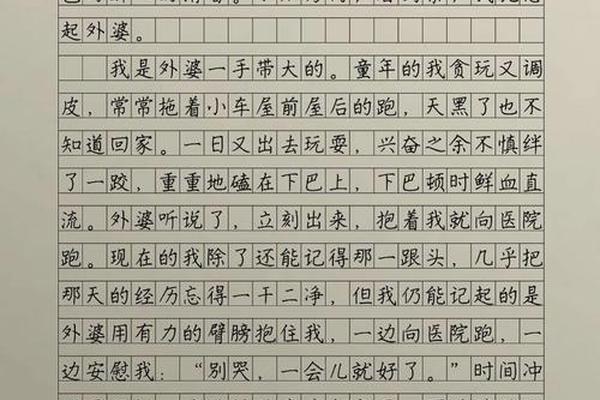 起外婆。
我是外婆一手带大的。童年的我贪玩又调
皮，常常拖着小车屋前屋后的跑，天黑了也不
知道回家。一日又出去玩耍，兴奋之余不慎绊
了一跤，重重地磕在下巴上，下巴顿时鲜血直
流。外婆听说了，立刻出来，抱着我就向医院
跑。现在的我除了还能记得那一跟头，几乎把
那天的经历忘得一干二净，但我仍能记起的是
外婆用有力的臂膀抱住我，一边向医院跑，一
边安慰我：“别哭，一会儿就好了。”时间冲